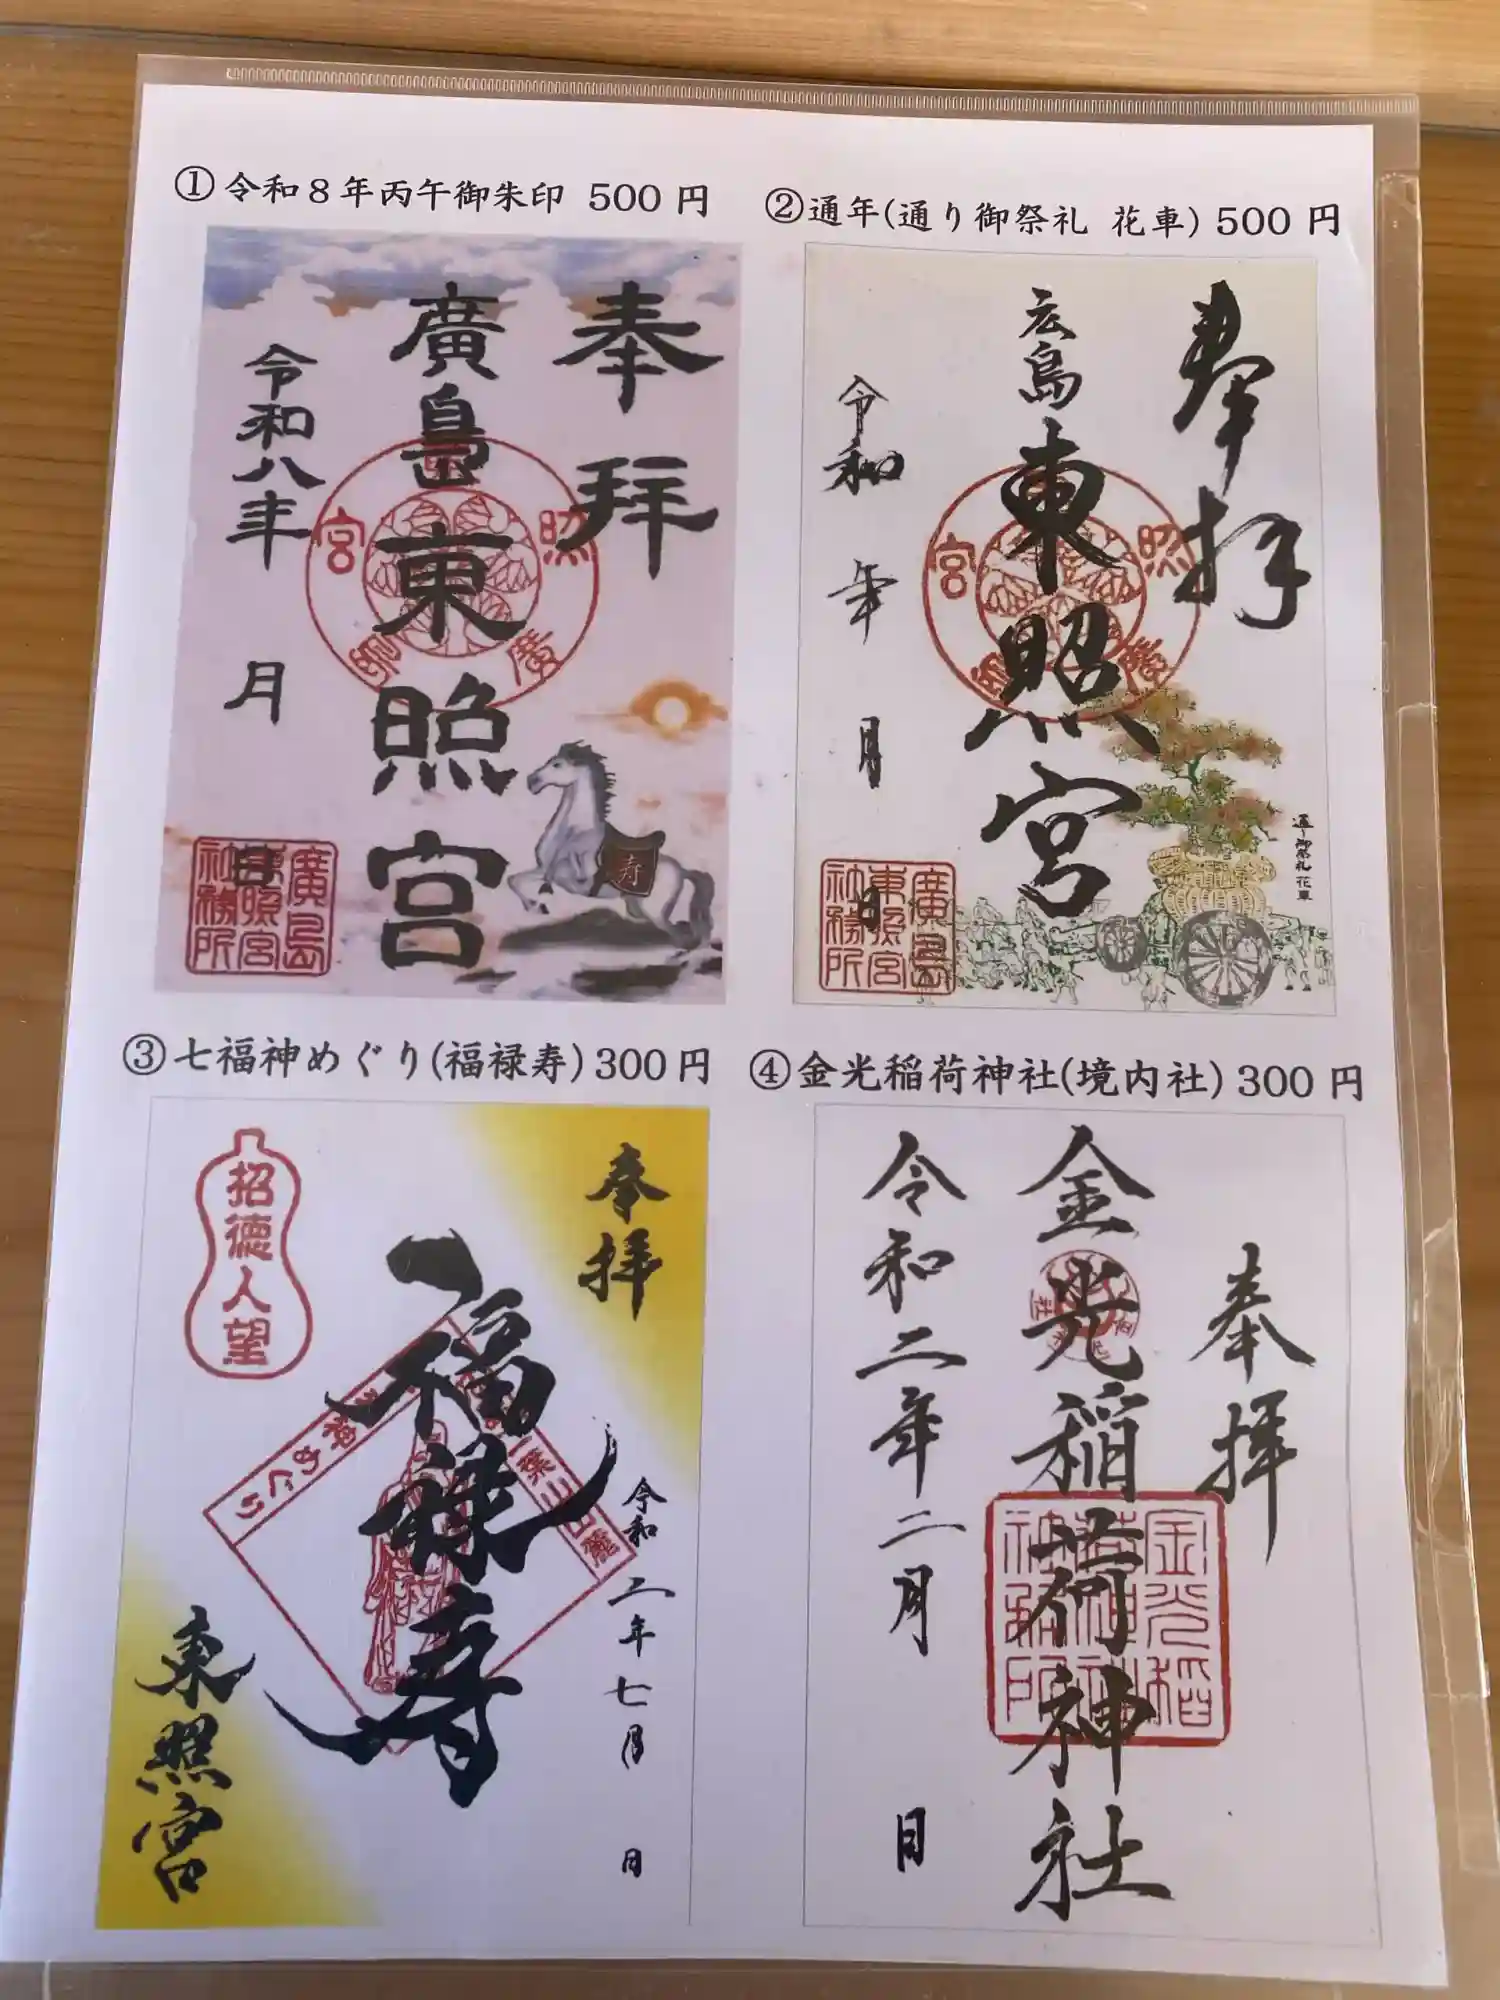 ①令和8年丙午御朱印 500円
奉拝
廣島東照宮
令和八年 月 日
照宮廣島
廣島東照宮社務所
寿
②通年(通り御祭礼 花車) 500円
奉拝
広島東照宮
令和 年 月 日
照宮廣島
廣島東照宮社務所
通り御祭礼 花車
③七福神めぐり(福禄寿) 300円
奉拝
招徳人望
福禄寿
令和二年七月 日
二葉山麓
めぐり
東照宮
④金光稲荷神社(境内社) 300円
奉拝
金光稲荷神社
令和二年二月 日
金光稲荷神社社務所